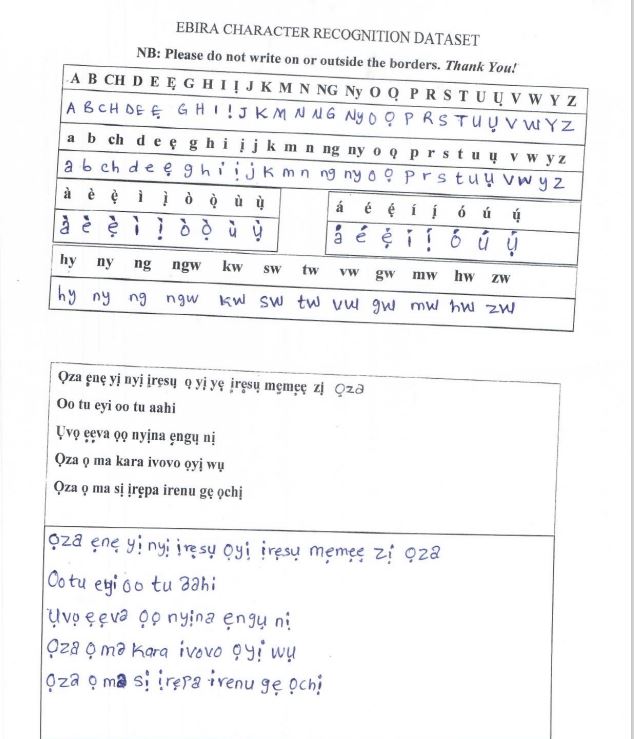 EBIRA CHARACTER RECOGNITION DATASET
NB: Please do not write on or outside the borders. Thank You!
A B CH D E Ẹ G H I Ị J K M N NG Ny O Ọ P R S T U Ụ V W Y Z
A B C H D E Ẹ G H I Ị J K M N N G Ny O Ọ P R S T U Ụ V W Y Z
a b ch d e ẹ g h i ị j k m n ng ny o ọ p r s t u ụ v w y z
a b ch d e ẹ g h i ị j k m n ng ny o ọ p r s t u ụ v w y z
à è ẹ̀ ì ị̀ ò ọ̀ ù ụ̀
à è ẹ̀ ì ị̀ ò ọ̀ ù ụ̀
á é ẹ́ í ị́ ó ú ụ́
á é ẹ́ í ị́ ó ú ụ́
hy ny ng ngw kw sw tw vw gw mw hw zw
hy ny ng ngw kw sw tw vw gw mw hw zw
Ọza ẹnẹ yị nyị ịrẹsụ ọ yị yẹ ịrẹsụ mẹmẹẹ zị ọza
Oo tu eyi oo tu aahi
Ụvọ ẹẹva ọọ nyịna ẹngụ nị
Ọza ọ ma kara ivovo ọyị wụ
Ọza ọ ma sị ịrẹpa irenu gẹ ọchị
Ọza ẹnẹ yị nyị ịrẹsụ ọyị ịrẹsụ mẹmẹẹ zị ọza
Oo tu eyi oo tu aahi
Ụvọ ẹẹva ọọ nyịna ẹngụ nị
Ọza ọ ma kara ivovo ọyị wụ
Ọza ọ ma sị ịrẹpa irenu gẹ ọchị